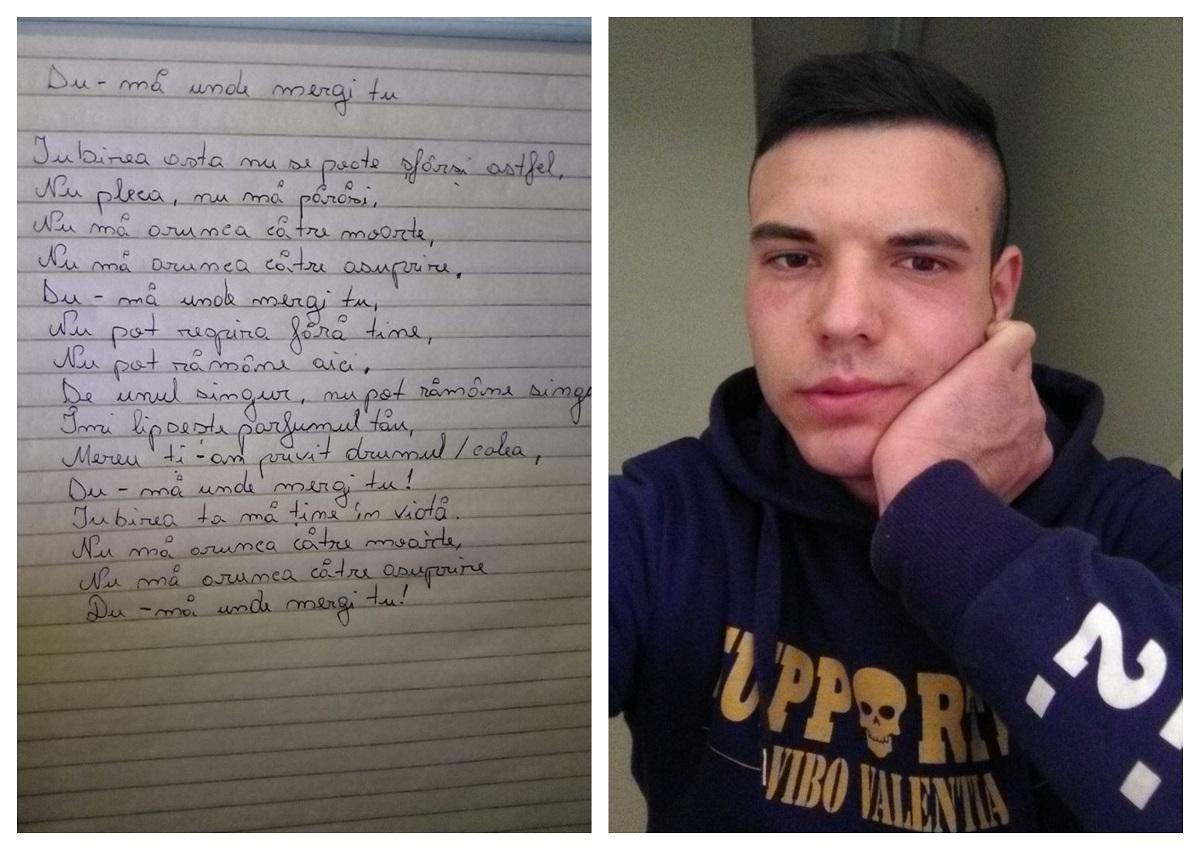 Du-mă unde mergi tu
Iubirea asta nu se poate sfârși astfel,
Nu pleca, nu mă părăsi,
Nu mă arunca către moarte,
Nu mă arunca către asuprire.
Du-mă unde mergi tu,
Nu pot respira fără tine,
Nu pot rămâne aici,
De unul singur, nu pot rămâne
Îmi lipsește parfumul tău,
Mereu ți-am privit drumul / calea,
Du-mă unde mergi tu!
Iubirea ta mă ține în viață.
Nu mă arunca către moarte,
Nu mă arunca către asuprire
Du-mă unde mergi tu!
VIBO VALENTIA